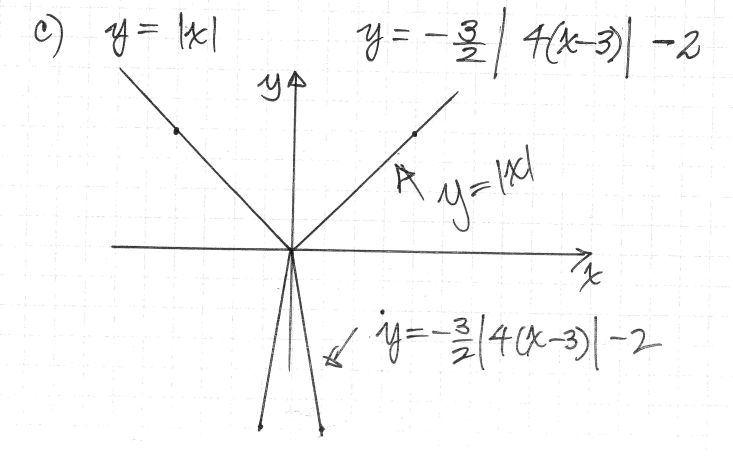 c) y = |x| y = -3/2 | 4(x-3)| -2
y
y = |x|
x
y = -3/2 |4(x-3)| -2